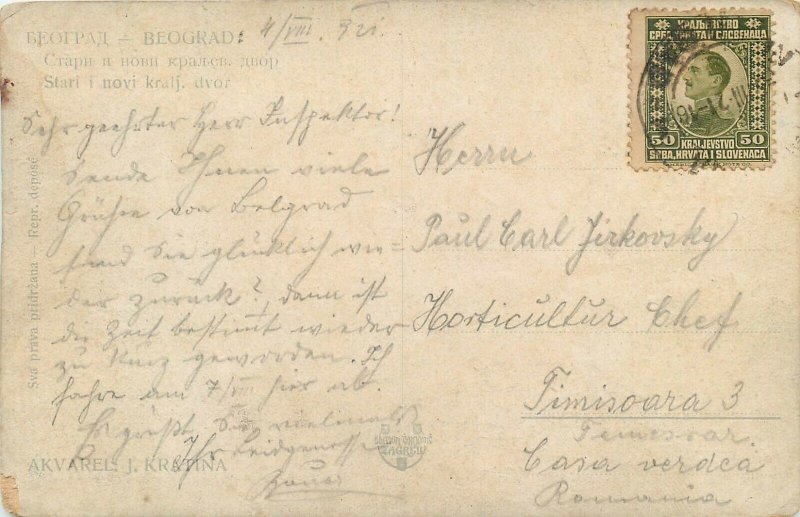 БЕОГРАД — BEOGRAD:
4/VIII. 921.
Стари и нови краљев. двор
Stari i novi kralj. dvor
Sehr geehrter Herr Inspektor!
Sende Ihnen viele
Grüße von Belgrad
sind Sie glücklich wie=
der zurück?, dann ist
die Zeit bestimmt wieder
zu kurz geworden. Ich
fahre am 7/VIII hier ab.
Es grüßt Sie vielmals
Ihr Leidgenosse
AKVAREL: J. KRATINA
Sva prava pridržana — Repr. déposé
ZAGREB
КРАЉЕВСТВО
СРБА, ХРВАТА И СЛОВЕНАЦА
50 50
KRALJEVSTVO
SRBA, HRVATA I SLOVENACA
VIII.21-16
Herrn
Paul Carl Jirkovsky
Horticultur Chef
Timisoara 3
Temesvar
Casa verdea
Romania